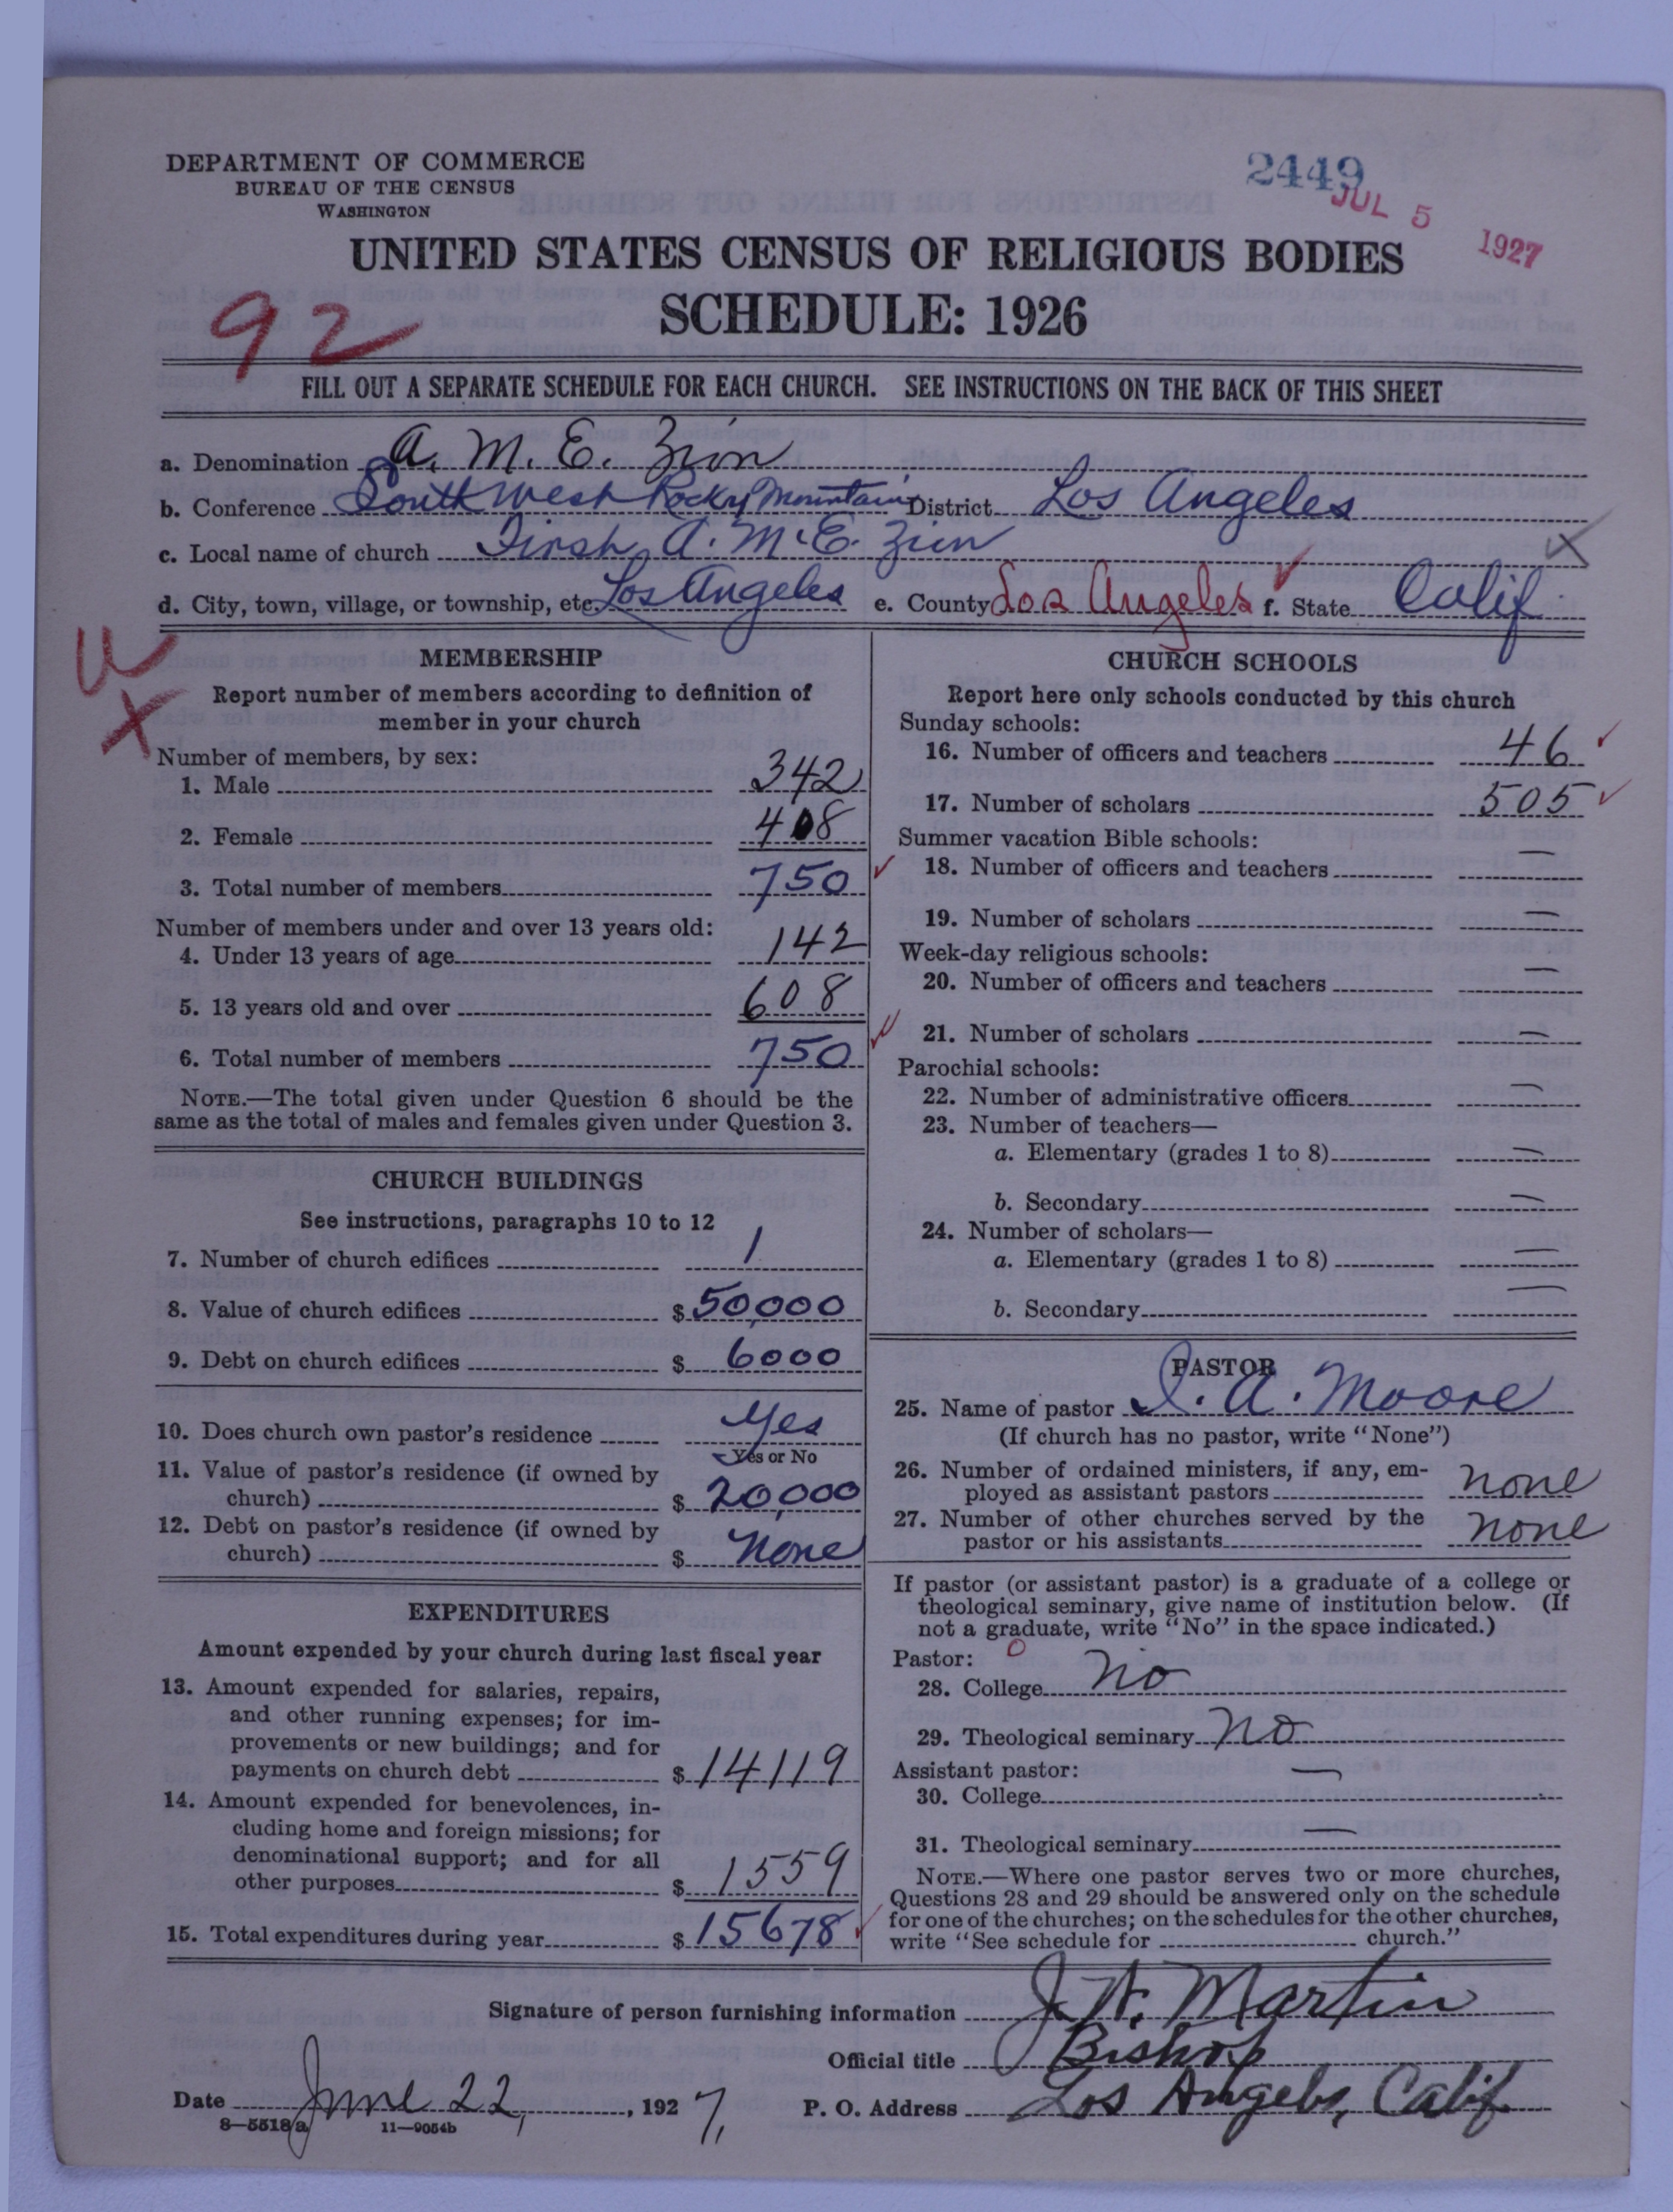 DEPARTMENT OF COMMERCE
BUREAU OF THE CENSUS
WASHINGTON
2449
JUL 5 1927
UNITED STATES CENSUS OF RELIGIOUS BODIES
SCHEDULE: 1926
92
FILL OUT A SEPARATE SCHEDULE FOR EACH CHURCH. SEE INSTRUCTIONS ON THE BACK OF THIS SHEET
a. Denomination A. M. E. Zion
b. Conference South West Rocky Mountain District Los Angeles
c. Local name of church First A. M. E. Zion
d. City, town, village, or township, etc. Los Angeles e. County Los Angeles f. State Calif.
MEMBERSHIP
Report number of members according to definition of
member in your church
Number of members, by sex:
1. Male 342
2. Female 408
3. Total number of members 750
Number of members under and over 13 years old:
4. Under 13 years of age 142
5. 13 years old and over 608
6. Total number of members 750
NOTE.—The total given under Question 6 should be the
same as the total of males and females given under Question 3.
CHURCH BUILDINGS
See instructions, paragraphs 10 to 12
7. Number of church edifices 1
8. Value of church edifices $50,000
9. Debt on church edifices $ 6000
10. Does church own pastor's residence Yes
Yes or No
11. Value of pastor's residence (if owned by
church) $ 20,000
12. Debt on pastor's residence (if owned by
church) $ None
EXPENDITURES
Amount expended by your church during last fiscal year
13. Amount expended for salaries, repairs,
and other running expenses; for im-
provements or new buildings; and for
payments on church debt $ 14119
14. Amount expended for benevolences, in-
cluding home and foreign missions; for
denominational support; and for all
other purposes $ 1559
15. Total expenditures during year $ 15678
CHURCH SCHOOLS
Report here only schools conducted by this church
Sunday schools:
16. Number of officers and teachers 46
17. Number of scholars 505
Summer vacation Bible schools:
18. Number of officers and teachers —
19. Number of scholars —
Week-day religious schools:
20. Number of officers and teachers —
21. Number of scholars —
Parochial schools:
22. Number of administrative officers —
23. Number of teachers—
a. Elementary (grades 1 to 8) —
b. Secondary —
24. Number of scholars—
a. Elementary (grades 1 to 8) —
b. Secondary —
PASTOR
25. Name of pastor I. A. Moore
(If church has no pastor, write "None")
26. Number of ordained ministers, if any, em-
ployed as assistant pastors none
27. Number of other churches served by the
pastor or his assistants none
If pastor (or assistant pastor) is a graduate of a college or
theological seminary, give name of institution below. (If
not a graduate, write "No" in the space indicated.)
Pastor: 0
28. College no
29. Theological seminary no
Assistant pastor: —
30. College
31. Theological seminary —
NOTE.—Where one pastor serves two or more churches,
Questions 28 and 29 should be answered only on the schedule
for one of the churches; on the schedules for the other churches,
write "See schedule for church."
Signature of person furnishing information J. W. Martin
Official title Bishop
Date June 22, 1927, P. O. Address Los Angeles, Calif
8—5518a 11—9054b